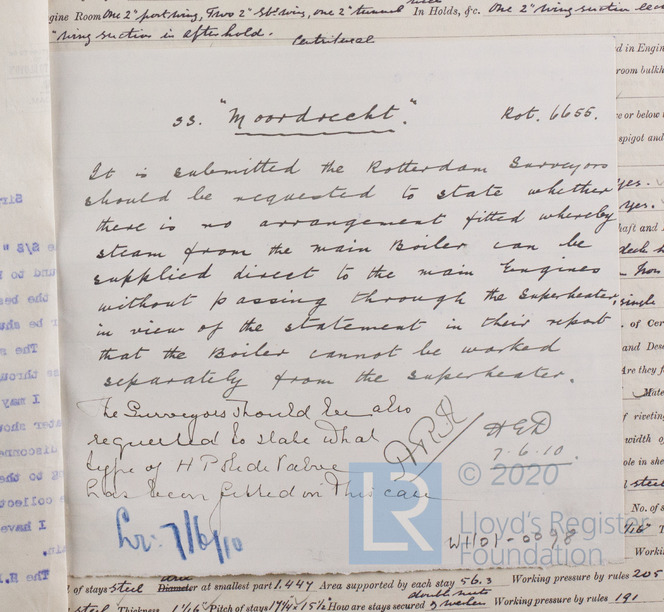 gine Room One 2" port wing, Two 2" Stbd wing, one 2" tunnel In Holds, &c. One 2" wing suction
" wing suction in after hold. Centrifugal
d in Engin
room bulkh
ss. "Moordrecht". Rot. 6655.
or below
spigot and
It is submitted the Rotterdam Surveyors
should be requested to state whether
Yes.
there is no arrangement fitted whereby
Yes.
steam from the main Boiler can be
supplied direct to the main Engines
without passing through the Superheater,
single
in view of the statement in their report
. of Cer
that the Boiler cannot be worked
and Des
separately from the superheater.
Are they f
The Surveyors should be also
requested to state what
type of H P Slide Valve
has been fitted in this case
HGD
7.6.10.
of riveting
width of
ole in she
steel
No. of s
Lr: 7/6/10
LR
© 2020
Lloyd's Register
Foundation
W1101-0098
Workin
of stays steel Diameter area at smallest part 1.447 Area supported by each stay 56.3 Working pressure by rules 205
steel Thickness 1 1/16" Pitch of stays 17 1/4 x 15 1/2 How are stays secured double nuts Working pressure by rules 191